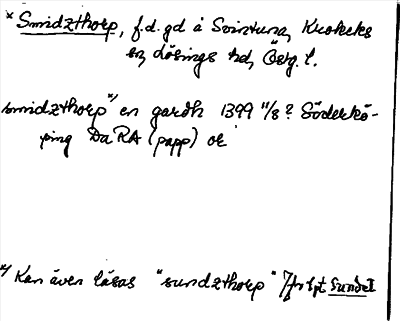 * Smidzthorp, f.d. gd å Svintuna, Krokeks
sn, Lösings hd, Östg. l.
smidzthorp*/ en gardh 1399 11/8? Söderkö-
ping DaRA (papp) or
*/ Kan även läsas "sundzthorp" Jfr Sundet